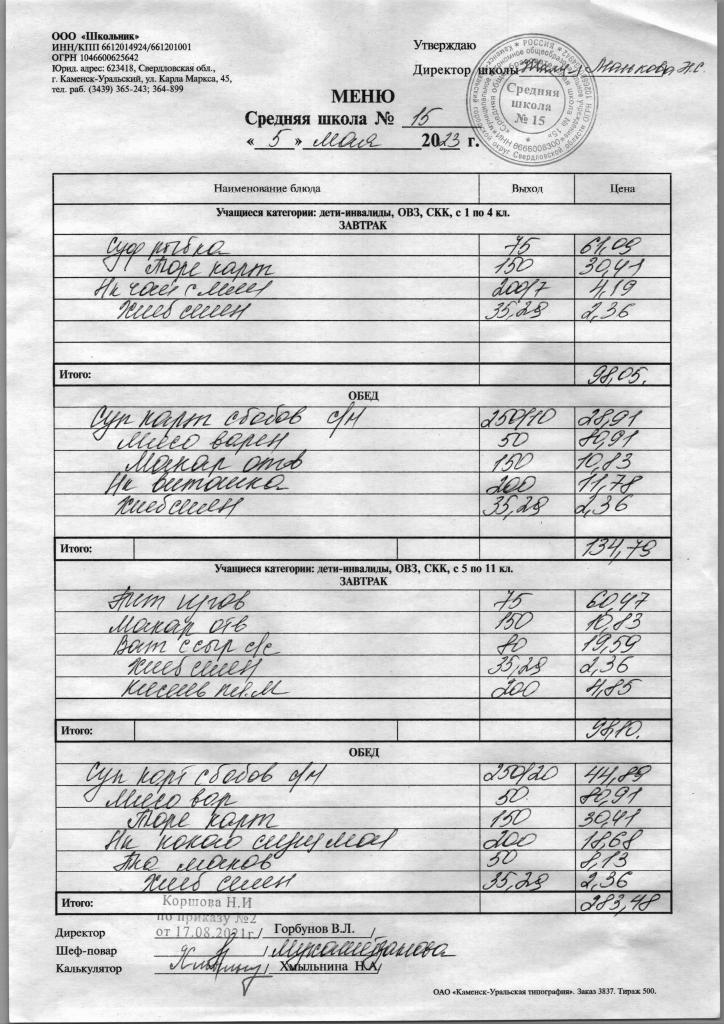 ООО «Школьник»
ИНН/КПП 6612014924/661201001
ОГРН 1046600625642
Юрид. адрес: 623418, Свердловская обл.,
г. Каменск-Уральский, ул. Карла Маркса, 45,
тел. раб. (3439) 365-243; 364-899
Утверждаю
Директор школы Манкова Ж.С.
Средняя
школа
№ 15
МЕНЮ
Средняя школа № 15
« 5 » мая 2023 г.
Наименование блюда Выход Цена
Учащиеся категории: дети-инвалиды, ОВЗ, СКК, с 1 по 4 кл.
ЗАВТРАК
Суф рыбка 75 61,09
Пюре карт 150 30,41
Нк чай с мин 200/7 4,19
Хлеб смен 35,29 2,36
Итого: 98,05.
ОБЕД
Суп карт с бобов с/н 250/10 28,91
Мясо варен 50 80,91
Макар отв 150 10,83
Нк витошка 200 11,78
Хлеб смен 35,29 2,36
Итого: 134,79
Учащиеся категории: дети-инвалиды, ОВЗ, СКК, с 5 по 11 кл.
ЗАВТРАК
75 60,47
Макар отв 150 10,83
Ват с сыр с/с 80 19,59
Хлеб смен 35,29 2,36
Кисель пл.м 200 4,85
Итого: 98,10.
ОБЕД
Суп карт с бобов с/н 250/20 44,89
Мясо вар 50 80,91
Пюре карт 150 30,41
Нк какао 200 18,68
50 8,13
Хлеб смен 35,29 2,36
Итого: 283,48
Коршова Н.И
по приказу №2
от 17.08.2021г.
Директор / Горбунов В.Л. /
Шеф-повар / Мухаметданова
Калькулятор / Хмыльнина Н.А/
ОАО «Каменск-Уральская типография». Заказ 3837. Тираж 500.